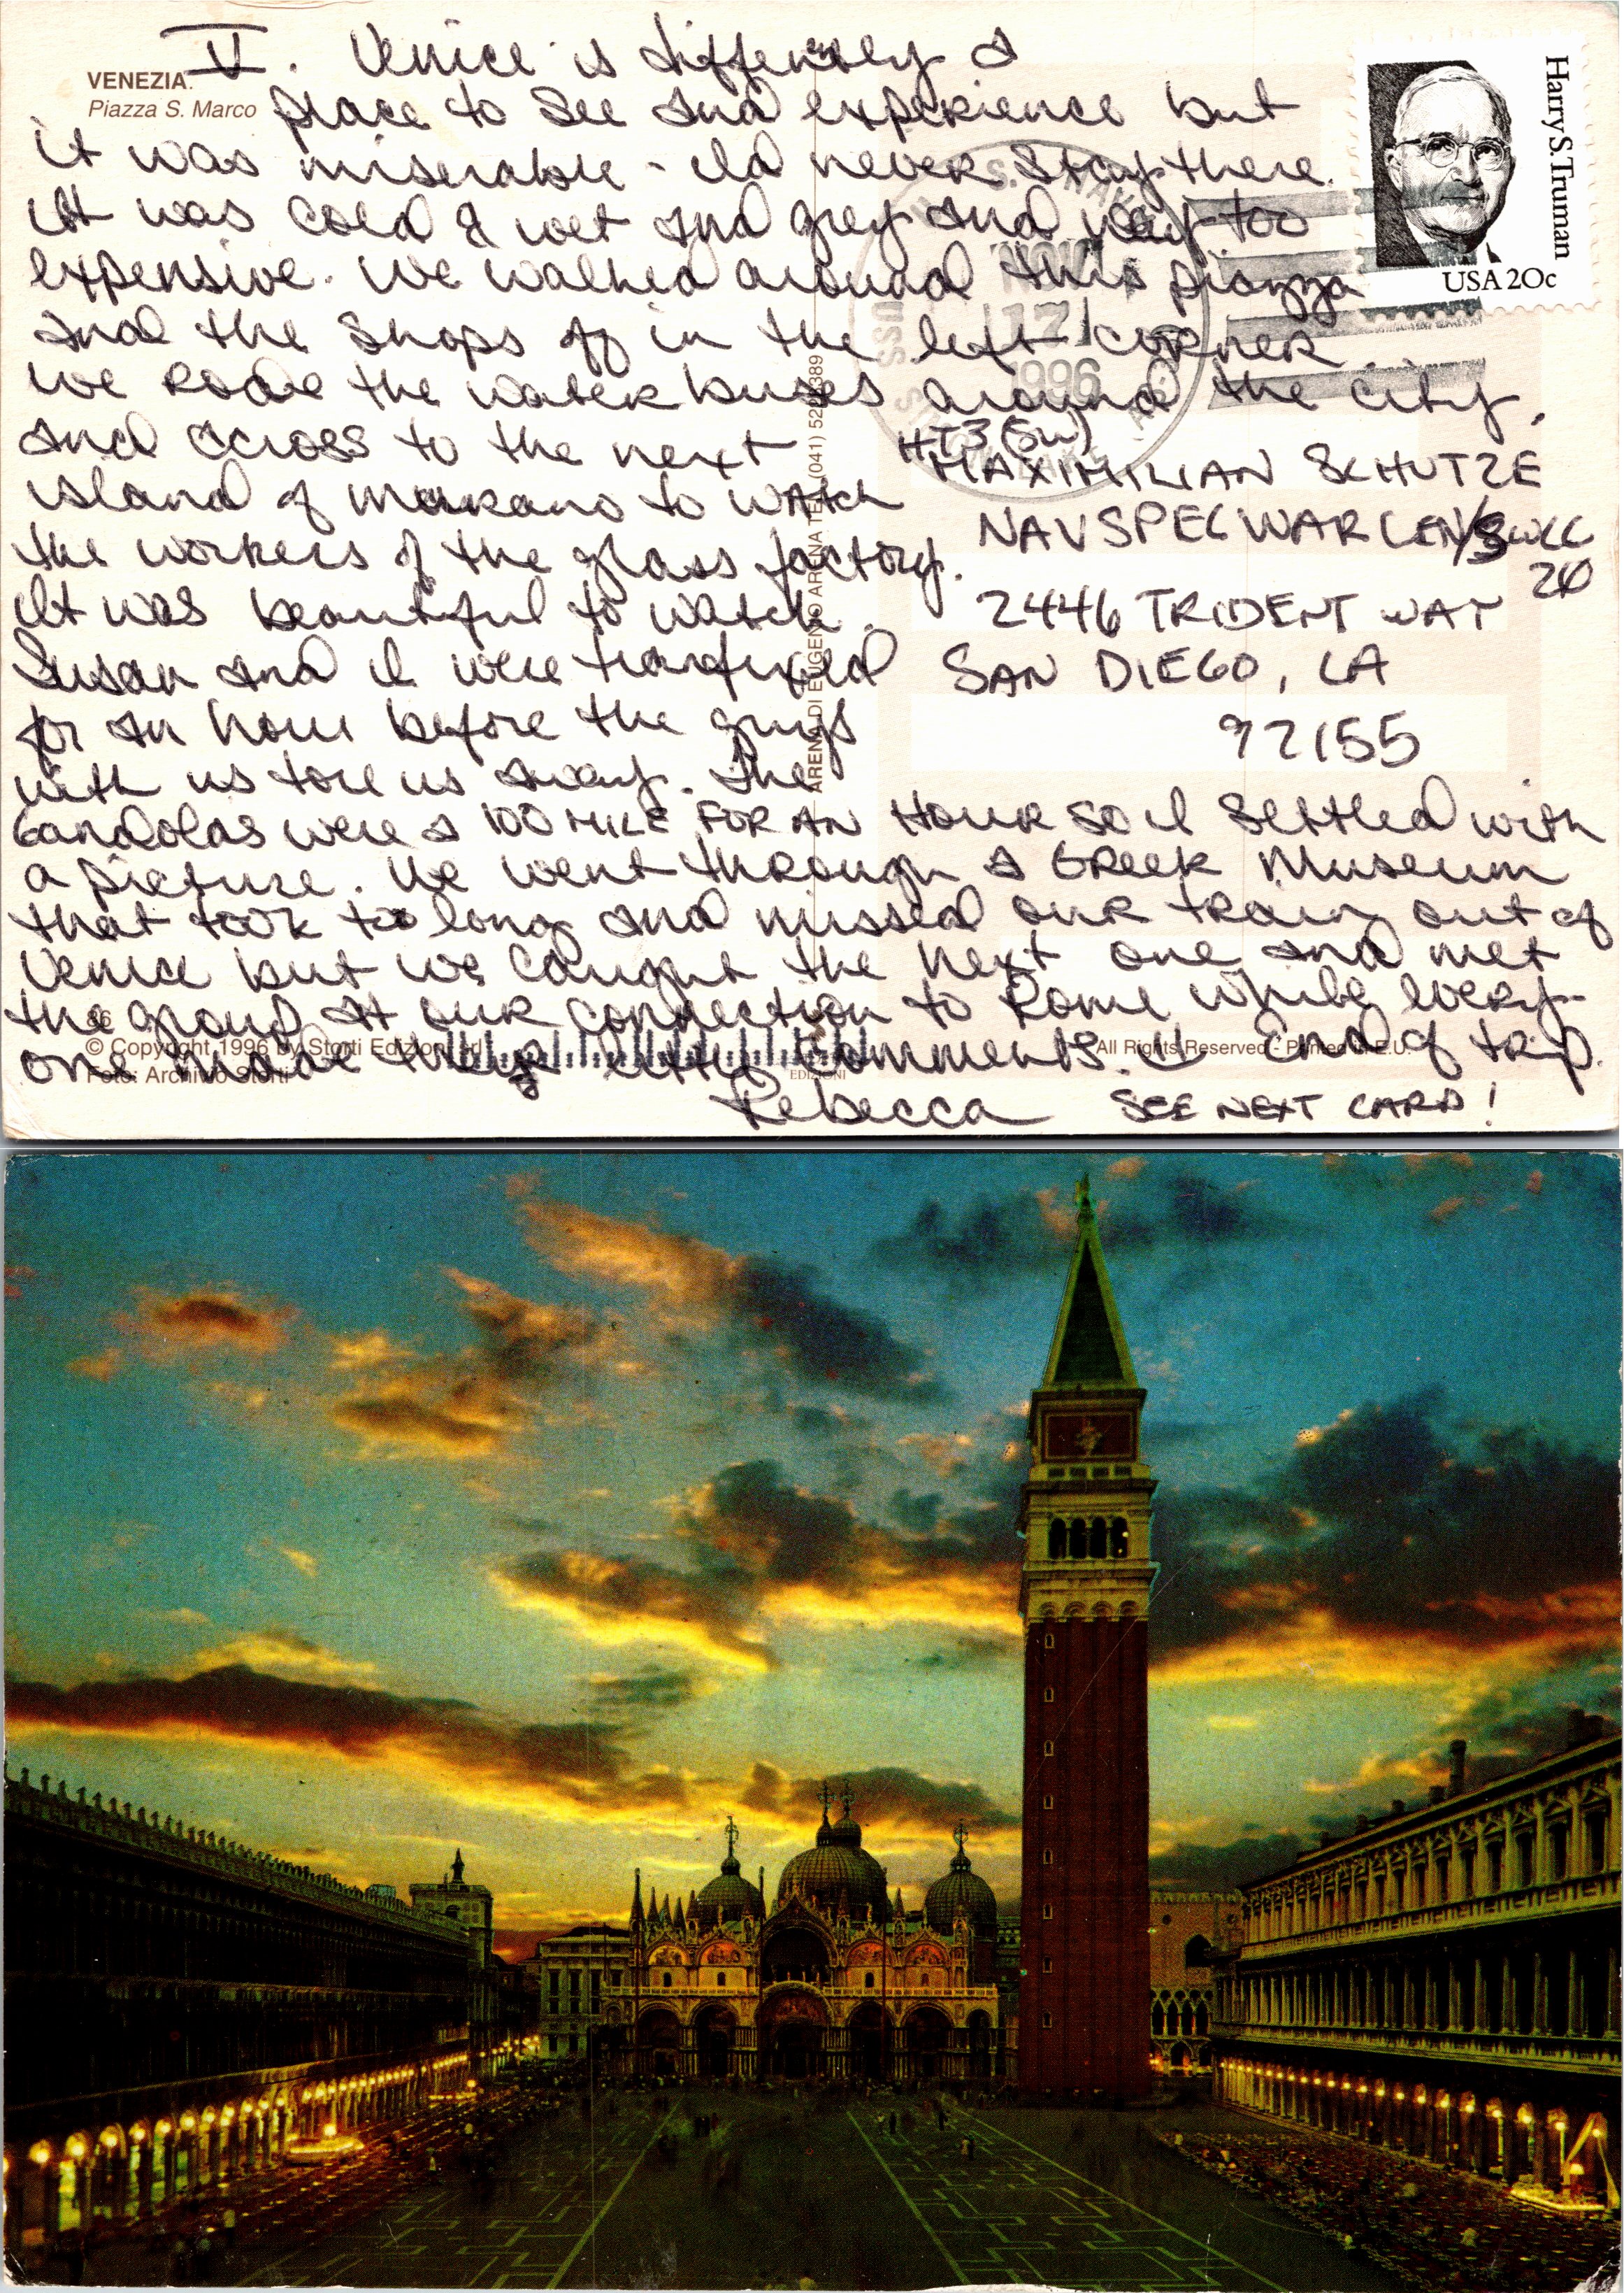 VENEZIA.
Piazza S. Marco
V. Venice is differently a
place to see and experience but
it was miserable - Id never stay there.
It was cold & wet and grey and way too
expensive. We walked around this piazza
and the shops off in the left corner.
We rode the water buses around the city,
and across to the next
island of Murano to watch
the workers of the glass factory.
It was beautiful to watch.
Susan and I were tranfixed
for an hour before the guys
with us tore us away. The
Gandolas were a 100 MILE FOR AN Hour so I settled with
a picture. We went through a Greek Museum
that took too long and missed our train out of
Venice but we caught the next one and met
the group at our connection to Rome while every-
one made their little comments. End of trip.
Rebecca SEE NEXT CARD!
HT3 (SW)
MAXIMILIAN SCHUTZE
NAVSPECWARCEN/
2446 TRIDENT WAY
SAN DIEGO, CA
92155
Harry S. Truman
USA 20c
NOV
17
1996
ARENA DI EUGENIO ARENA TEL. (041)
© Copyright 1996 by Storti Edizioni srl
Foto: Archivio Storti
EDIZIONI
All Rights Reserved - Printed in E.U.